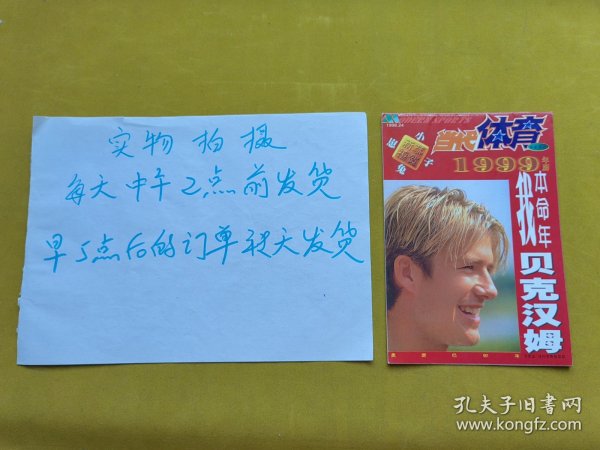 实物拍摄
每天中午2点前发货
早5点后的订单积天发货
MODERN SPORTS
1998.24
当代体育
小兔子
1999
我本命年
贝克汉姆
孔夫子旧书网
www.kongfz.com